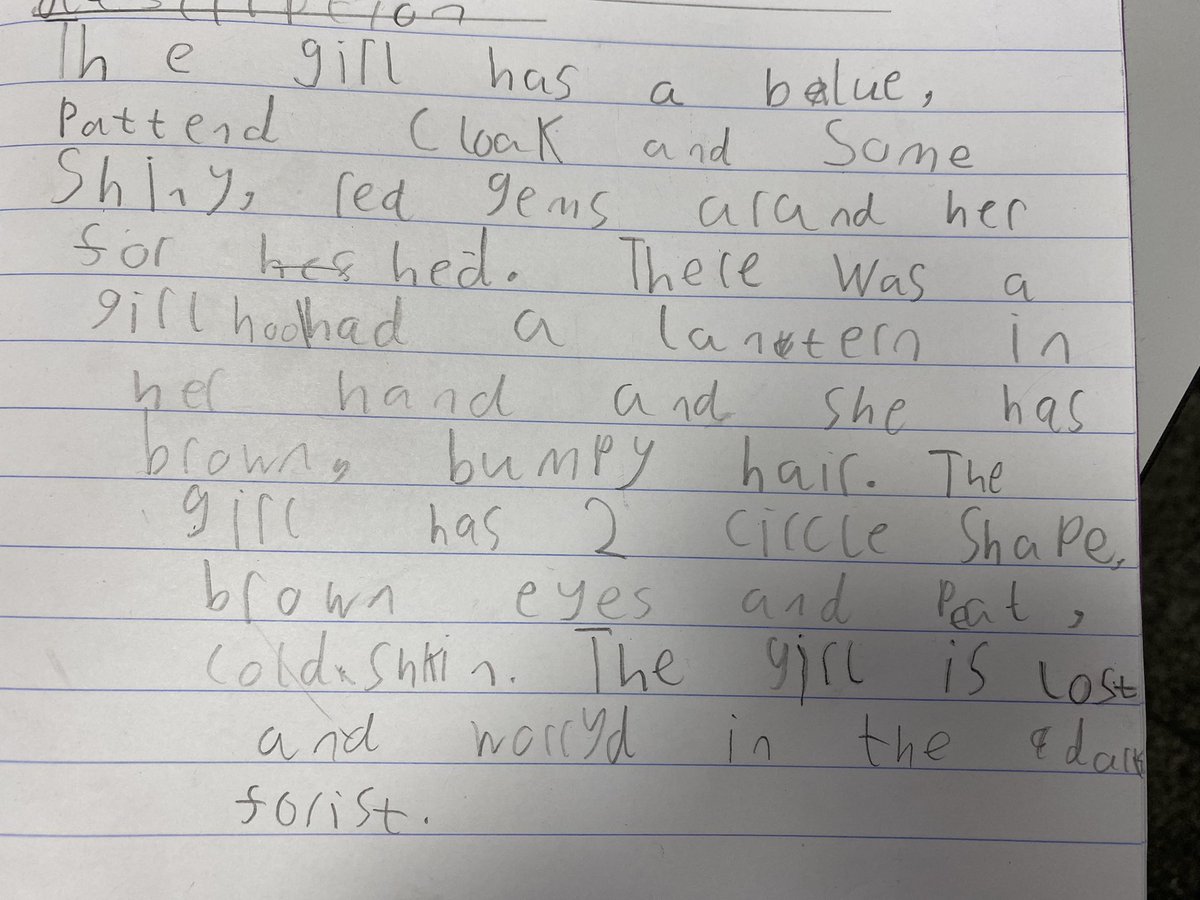 description
The girl has a blue,
Pattend Cloak and Some
Shiny, red gems arand her
for hed. There was a
girl had a lantern in
her hand and she has
brown, bumpy hair. The
girl has 2 circle Shape,
brown eyes and
cold shkin. The girl is lost
and worryd in the dark
forist.